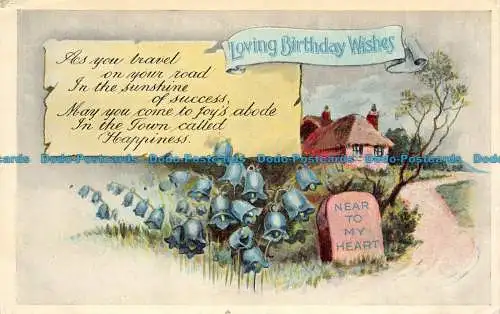 Loving Birthday Wishes
As you travel
on your road
In the sunshine
of success,
May you come to Joy's abode
In the Town called
Happiness.
NEAR
TO
MY
HEART
Dodo-Postcards Dodo-Postcards Dodo-Postcards Dodo-Postcards Dodo-Postcards